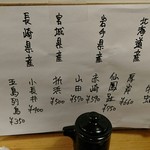 北海道産
厚岸
¥460
岩手県産
仙鳳趾
¥550
赤崎
¥590
山田
¥570
宮城県産
折浜
¥500
長崎県産
小長井
¥400
五島列島
¥350